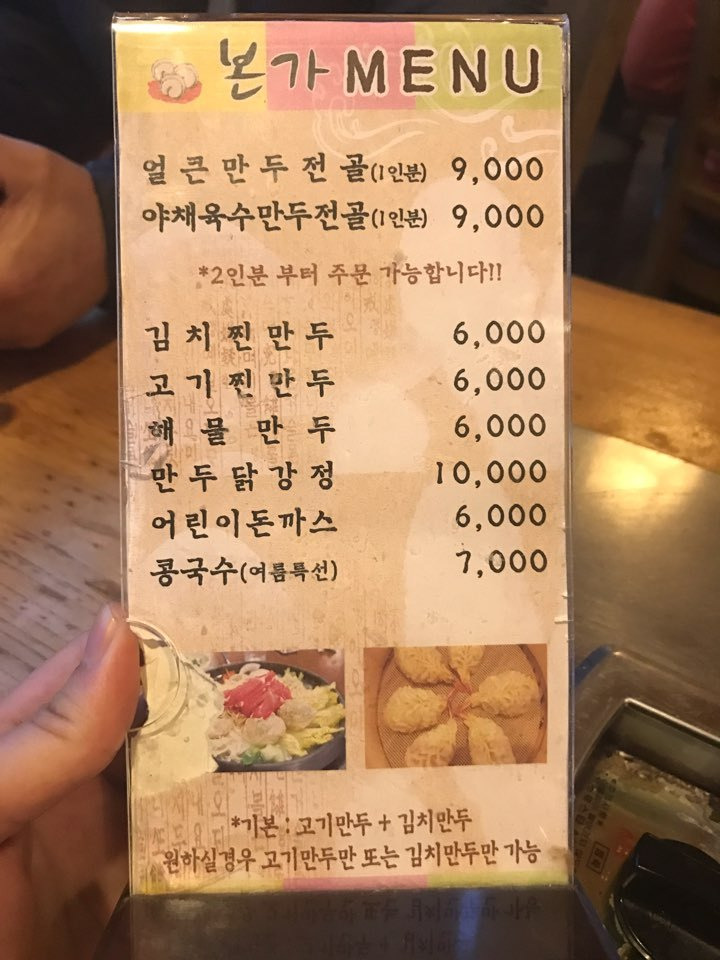 본가 MENU
얼큰만두전골(1인분) 9,000
야채육수만두전골(1인분) 9,000
*2인분 부터 주문 가능합니다!!
김치찐만두 6,000
고기찐만두 6,000
해물만두 6,000
만두닭강정 10,000
어린이돈까스 6,000
콩국수(여름특선) 7,000
*기본 : 고기만두 + 김치만두
원하실경우 고기만두만 또는 김치만두만 가능